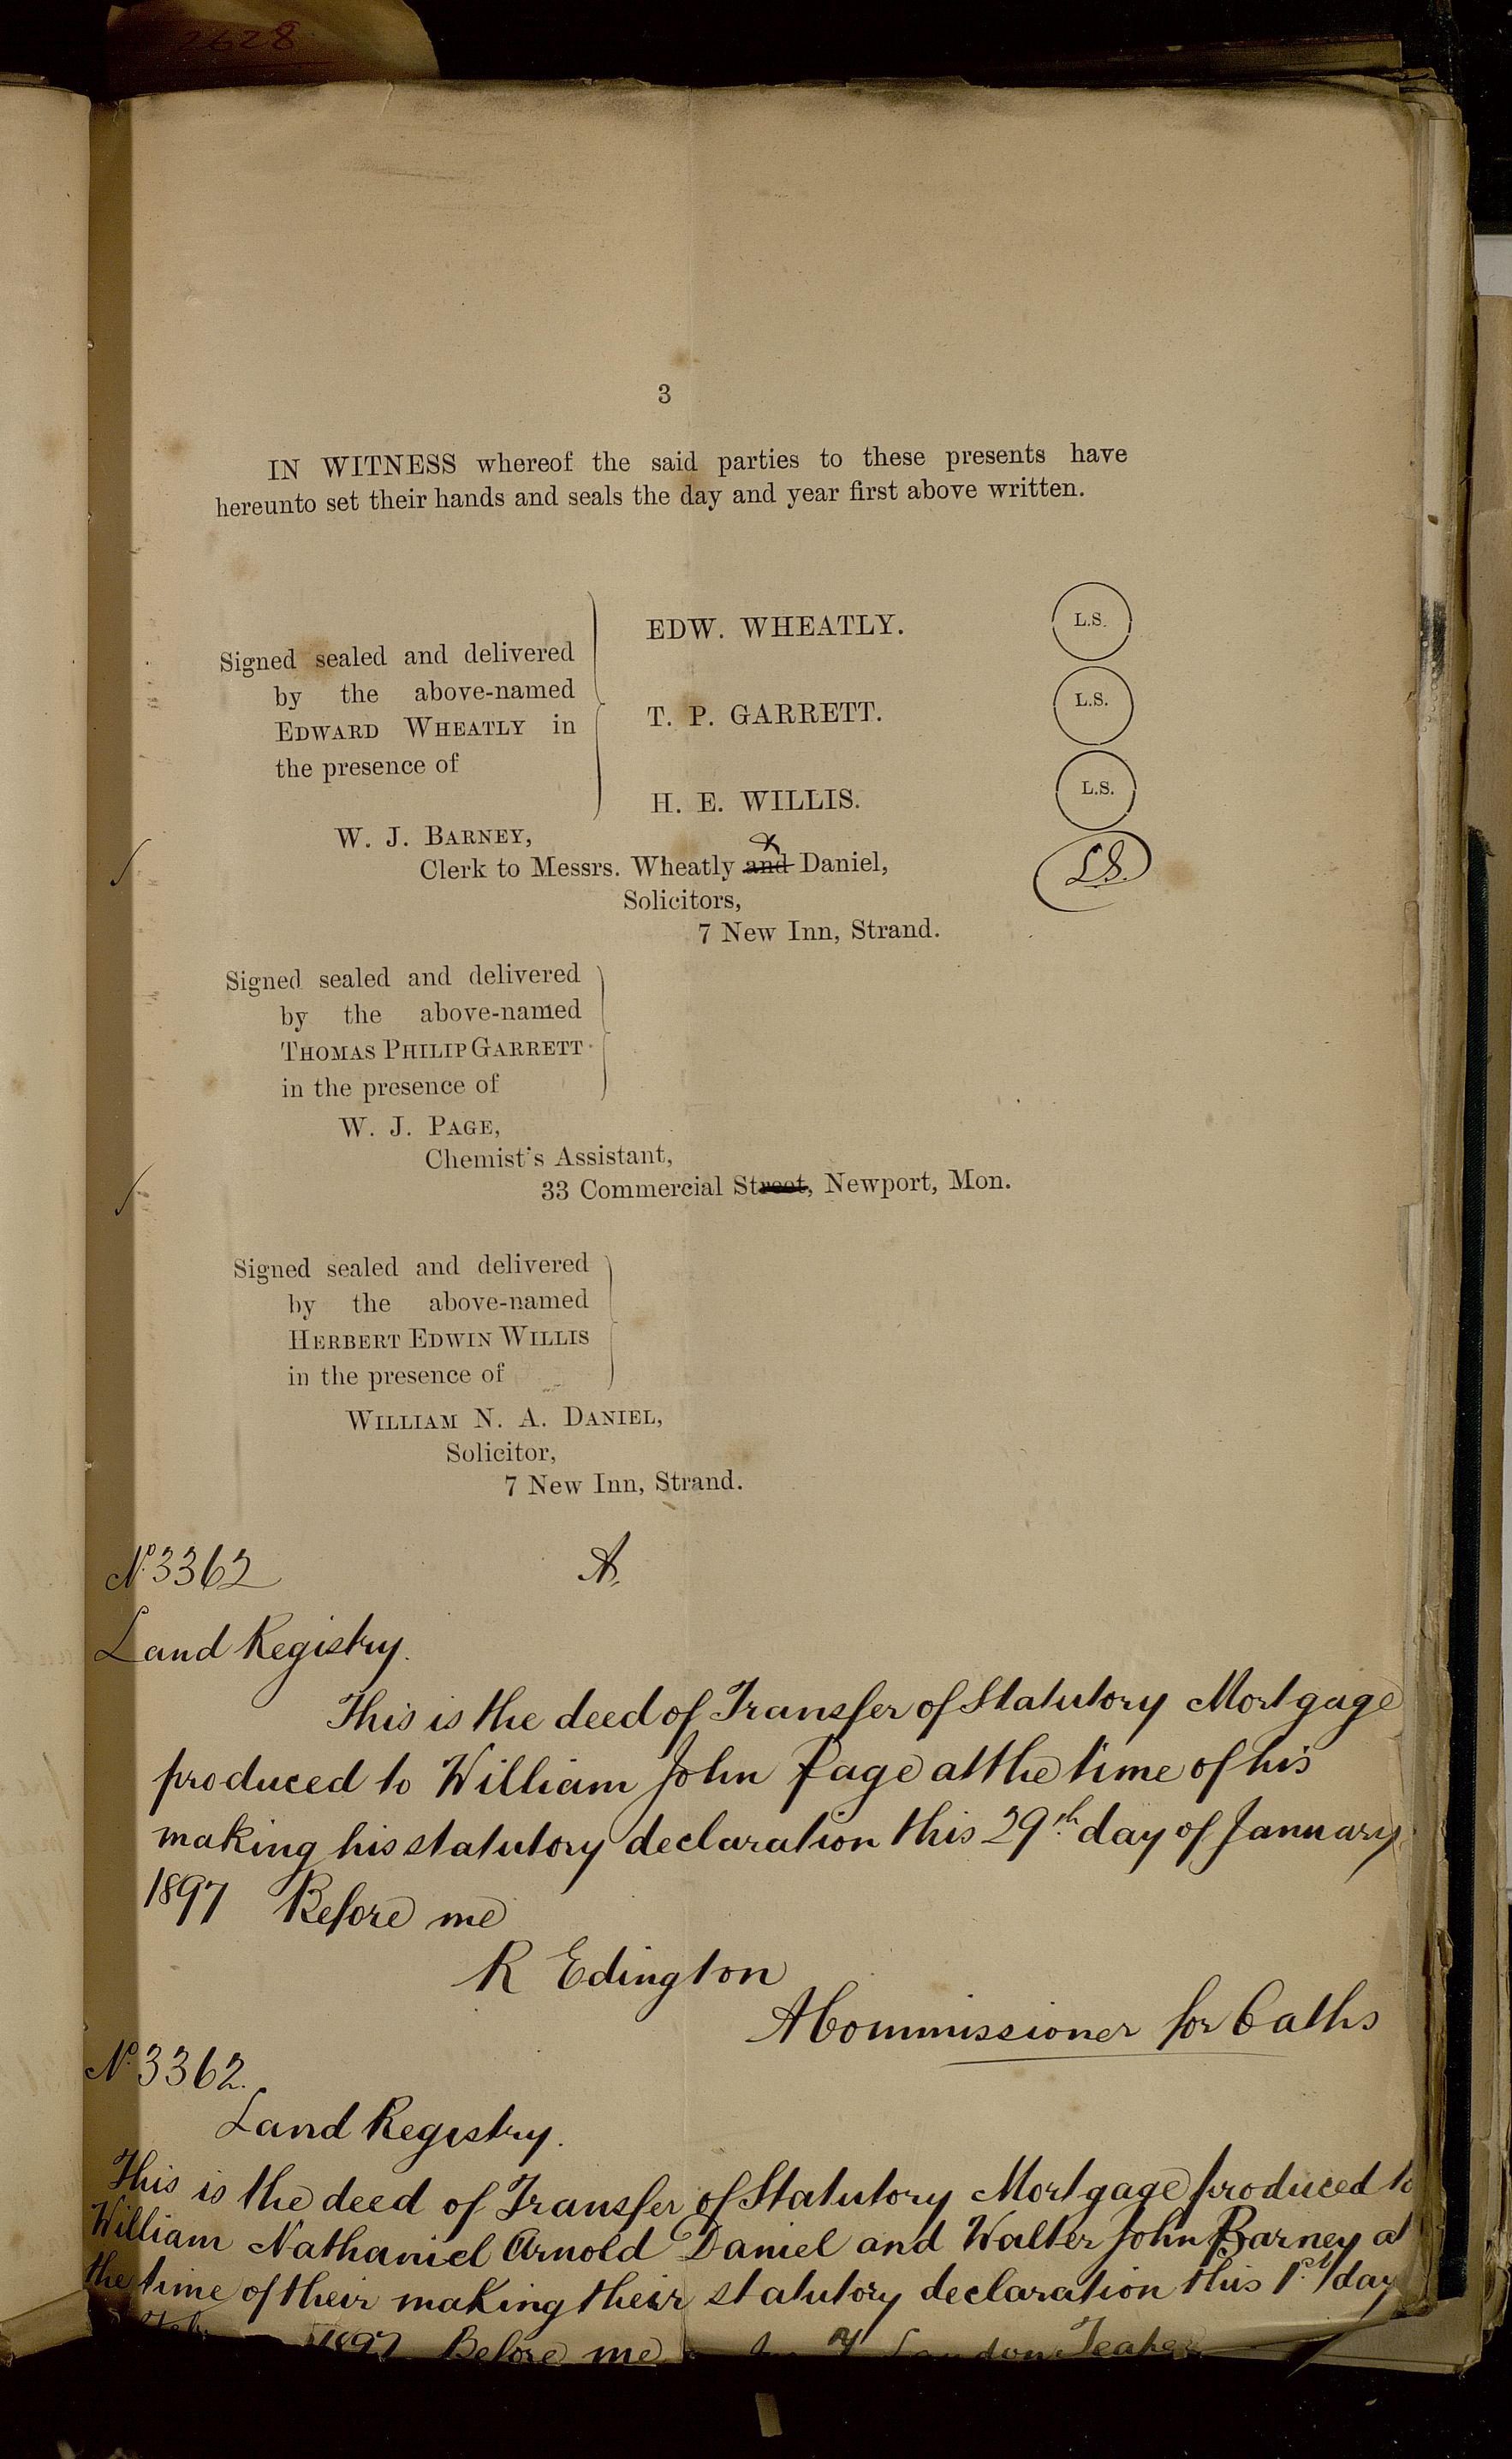 2628
3
IN WITNESS whereof the said parties to these presents have
hereunto set their hands and seals the day and year first above written.
Signed sealed and delivered
by the above-named
EDWARD WHEATLY in
the presence of
EDW. WHEATLY. L.S.
T. P. GARRETT. L.S.
H. E. WILLIS. L.S.
W. J. BARNEY,
x
Clerk to Messrs. Wheatly and Daniel, L.S.
Solicitors,
7 New Inn, Strand.
Signed sealed and delivered
by the above-named
THOMAS PHILIP GARRETT
in the presence of
W. J. PAGE,
Chemist's Assistant,
33 Commercial Street, Newport, Mon.
Signed sealed and delivered
by the above-named
HERBERT EDWIN WILLIS
in the presence of
WILLIAM N. A. DANIEL,
Solicitor,
7 New Inn, Strand.
No. 3362 A.
Land Registry.
This is the deed of Transfer of Statutory Mortgage
produced to William John Page at the time of his
making his statutory declaration this 29th day of January
1897 Before me
R Edington
A Commissioner for Oaths
No. 3362.
Land Registry.
This is the deed of Transfer of Statutory Mortgage produced to
William Nathaniel Arnold Daniel and Walter John Barney at
the time of their making their statutory declaration this 1st day
1897 Before me